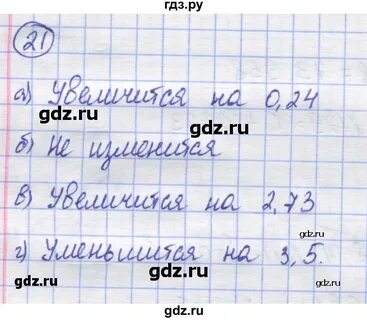 гдз.ру
21
gdz.ru
gdz.ru
а) Увеличится на 0,24
gdz.ru
gdz.ru
б) Не изменится
gdz.ru
в) Увеличится на 2,73
gdz.ru
gdz.ru
г) Уменьшится на 3,5.
gdz.ru
gdz.ru